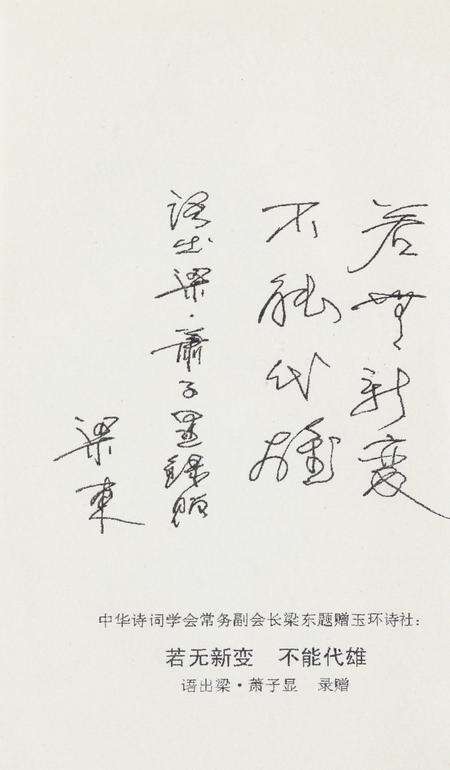 若無新变
不能代雄
语出梁·萧子显錄贈
梁东
中华诗词学会常务副会长梁东题赠玉环诗社：
若无新变 不能代雄
语出梁·萧子显 录赠